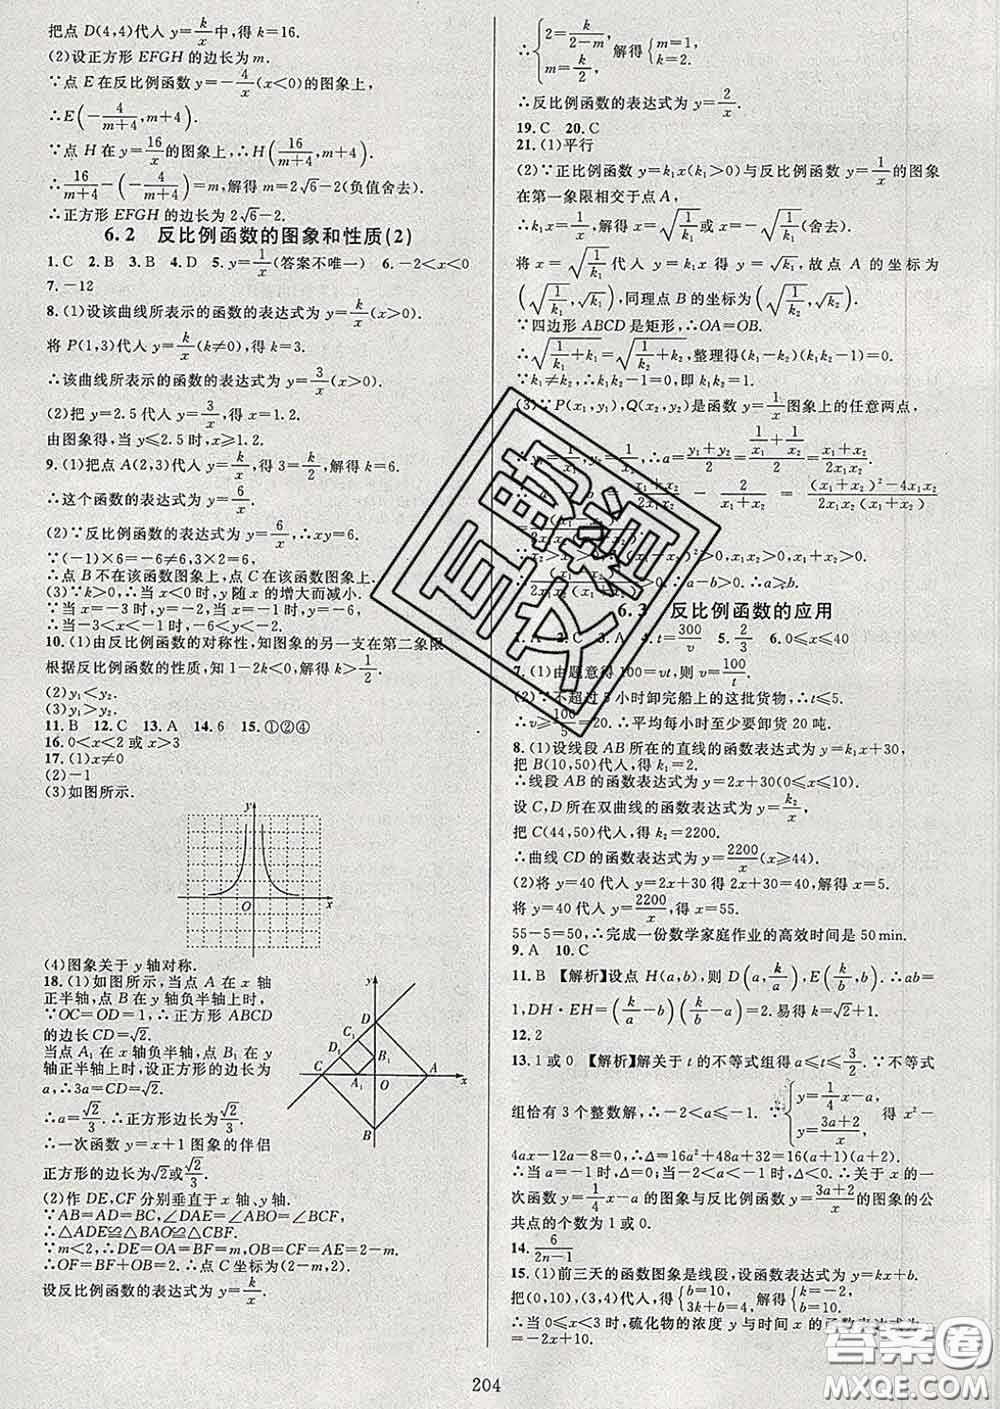 把点 D(4,4)代人 y=k/x中,得 k=16.
(2)设正方形 EFGH 的边长为 m.
∵点 E 在反比例函数 y=-4/x(x<0)的图象上,
∴E(-4/(m+4),m+4).
∵点 H 在 y=16/x的图象上,∴H(16/(m+4),m+4).
∴16/(m+4)-(-4/(m+4))=m,解得 m=2√6-2(负值舍去).
∴正方形 EFGH 的边长为 2√6-2.
6.2 反比例函数的图象和性质(2)
1.C 2.B 3.B 4.D 5.y=1/x(答案不唯一) 6.-2<x<0
7.-12
8.(1)设该曲线所表示的函数的表达式为 y=k/x(x>0).
将 P(1,3)代人 y=k/x(k≠0),得 k=3.
∴该曲线所表示的函数的表达式为 y=3/x(x>0).
(2)把 y=2.5 代人 y=3/x,得 x=1.2.
由图象得,当 y≤2.5 时,x≥1.2.
9.(1)把点 A(2,3)代人 y=k/x,得 3=k/2,解得 k=6.
∴这个函数的表达式为 y=6/x.
(2)∵反比例函数的表达式为 y=6/x,∴xy=6.
∵(-1)×6=-6≠6,3×2=6,
∴点 B 不在该函数图象上,点 C 在该函数图象上.
(3)∵k>0,∴当 x<0 时,y 随 x 的增大而减小.
∵当 x=-3 时,y=-2,当 x=-1 时,y=-6,
∴当-3<x<-1 时,-6<y<-2.
10.(1)由反比例函数的对称性,知图象的另一支在第二象限.
根据反比例函数的性质,知 1-2k<0,解得 k>1/2.
(2)y₁<y₂.
(3)y₁>y₂.
11.B 12.C 13.A 14.6 15.①②④
16.0<x<2 或 x>3
17.(1)x≠0
(2)-1
(3)如图所示.
y
O
x
(4)图象关于 y 轴对称.
18.(1)如图所示,当点 A 在 x 轴
正半轴,点 B 在 y 轴负半轴上时,
∵OC=OD=1,∴正方形 ABCD
的边长 CD=√2.
当点 A₁ 在 x 轴负半轴,点 B₁ 在 y
轴正半轴上时,设正方形的边长为
a,∴3a=CD=√2.
∴a=√2/3.∴正方形边长为√2/3.
∴一次函数 y=x+1 图象的伴侣
正方形的边长为√2或√2/3.
y
D
C₁
D₁
B₁
C
A₁
O
A
x
B
(2)作 DE,CF 分别垂直于 x 轴、y 轴.
∵AB=AD=BC,∠DAE=∠ABO=∠BCF,
∴△ADE≌△BAO≌△CBF.
∵m<2,∴DE=OA=BF=m,OB=CF=AE=2-m.
∴OF=BF+OB=2.∴点 C 坐标为(2-m,2).
设反比例函数的表达式为 y=k/x.
∴{2=k/(2-m), m=k/2, 解得{m=1, k=2.
∴反比例函数的表达式为 y=2/x.
19.C 20.C
21.(1)平行
(2)∵正比例函数 y=k₁x(k₁>0)与反比例函数 y=1/x的图象
在第一象限相交于点 A,
∴k₁x=1/x,解得 x=√(1/k₁)或 x=-√(1/k₁)(舍去).
将 x=√(1/k₁)代人 y=k₁x 得 y=√k₁,故点 A 的坐标为
(√(1/k₁),√k₁),同理点 B 的坐标为(√(1/k₂),√k₂).
∵四边形 ABCD 是矩形,∴OA=OB.
∴√(1/k₁+k₁)=√(1/k₂+k₂),整理得(k₁-k₂)(k₁k₂-1)=0.
∵k₁≠k₂,∴k₁k₂-1=0,即 k₁k₂=1.
(3)∵P(x₁,y₁),Q(x₂,y₂)是函数 y=1/x图象上的任意两点,
∴y₁=1/x₁,y₂=1/x₂.∴a=(y₁+y₂)/2=(1/x₁+1/x₂)/2=(x₁+x₂)/2x₁x₂.
(x₁+x₂)/2x₁x₂-2/(x₁+x₂)=((x₁+x₂)²-4x₁x₂)/
>0,x₁x₂>0,x₁+x₂>0.
>0.∴a-b>0.∴a>b.
6.3 反比例函数的应用
1.A 2.C 3.A 4.t=300/v 5.2/3 6.0≤x≤40
7.(1)由题意得 100=vt,则 v=100/t.
(2)∵不超过 5 小时卸完船上的这批货物,∴t≤5.
∴v≥100/5=20.∴平均每小时至少要卸货 20 吨.
8.(1)设线段 AB 所在的直线的函数表达式为 y=k₁x+30,
把 B(10,50)代人,得 k₁=2.
∴线段 AB 的函数表达式为 y=2x+30(0≤x≤10).
设 C,D 所在双曲线的函数表达式为 y=k₂/x,
把 C(44,50)代人,得 k₂=2200.
∴曲线 CD 的函数表达式为 y=2200/x(x≥44).
(2)将 y=40 代人 y=2x+30 得 2x+30=40,解得 x=5.
将 y=40 代人 y=2200/x,得 x=55.
55-5=50,∴完成一份数学家庭作业的高效时间是 50 min.
9.A 10.C
11.B 【解析】设点 H(a,b),则 D(a,k/a),E(k/b,b).∴ab=
1,DH·EH=(k/a-b)(k/b-a)=2,解得 k=√2+1.
12.2
13.1 或 0 【解析】解关于 t 的不等式组得 a≤t≤3/2.∵不等式
组恰有 3 个整数解,∴-2<a≤-1.∵{y=1/4x-a, y=(3a+2)/x, 得 x²-
4ax-12a-8=0,∴Δ=16a²+48a+32=16(a+1)(a+2).
∴当 a=-1 时,Δ=0;当-2<a<-1 时,Δ<0.∴关于 x 的一
次函数 y=1/4x-a 的图象与反比例函数 y=(3a+2)/x的图象的公
共点的个数为 1 或 0.
14.6/(2n-1)
15.(1)前三天的函数图象是线段,设函数表达式为 y=kx+b.
把(0,10),(3,4)代人,得{b=10, 3k+b=4, 解得{k=-2, b=10.
∴当 0≤x<3 时,硫化物的浓度 y 与时间 x 的函数表达式为
y=-2x+10.
204
答案圈
MXQE.COM